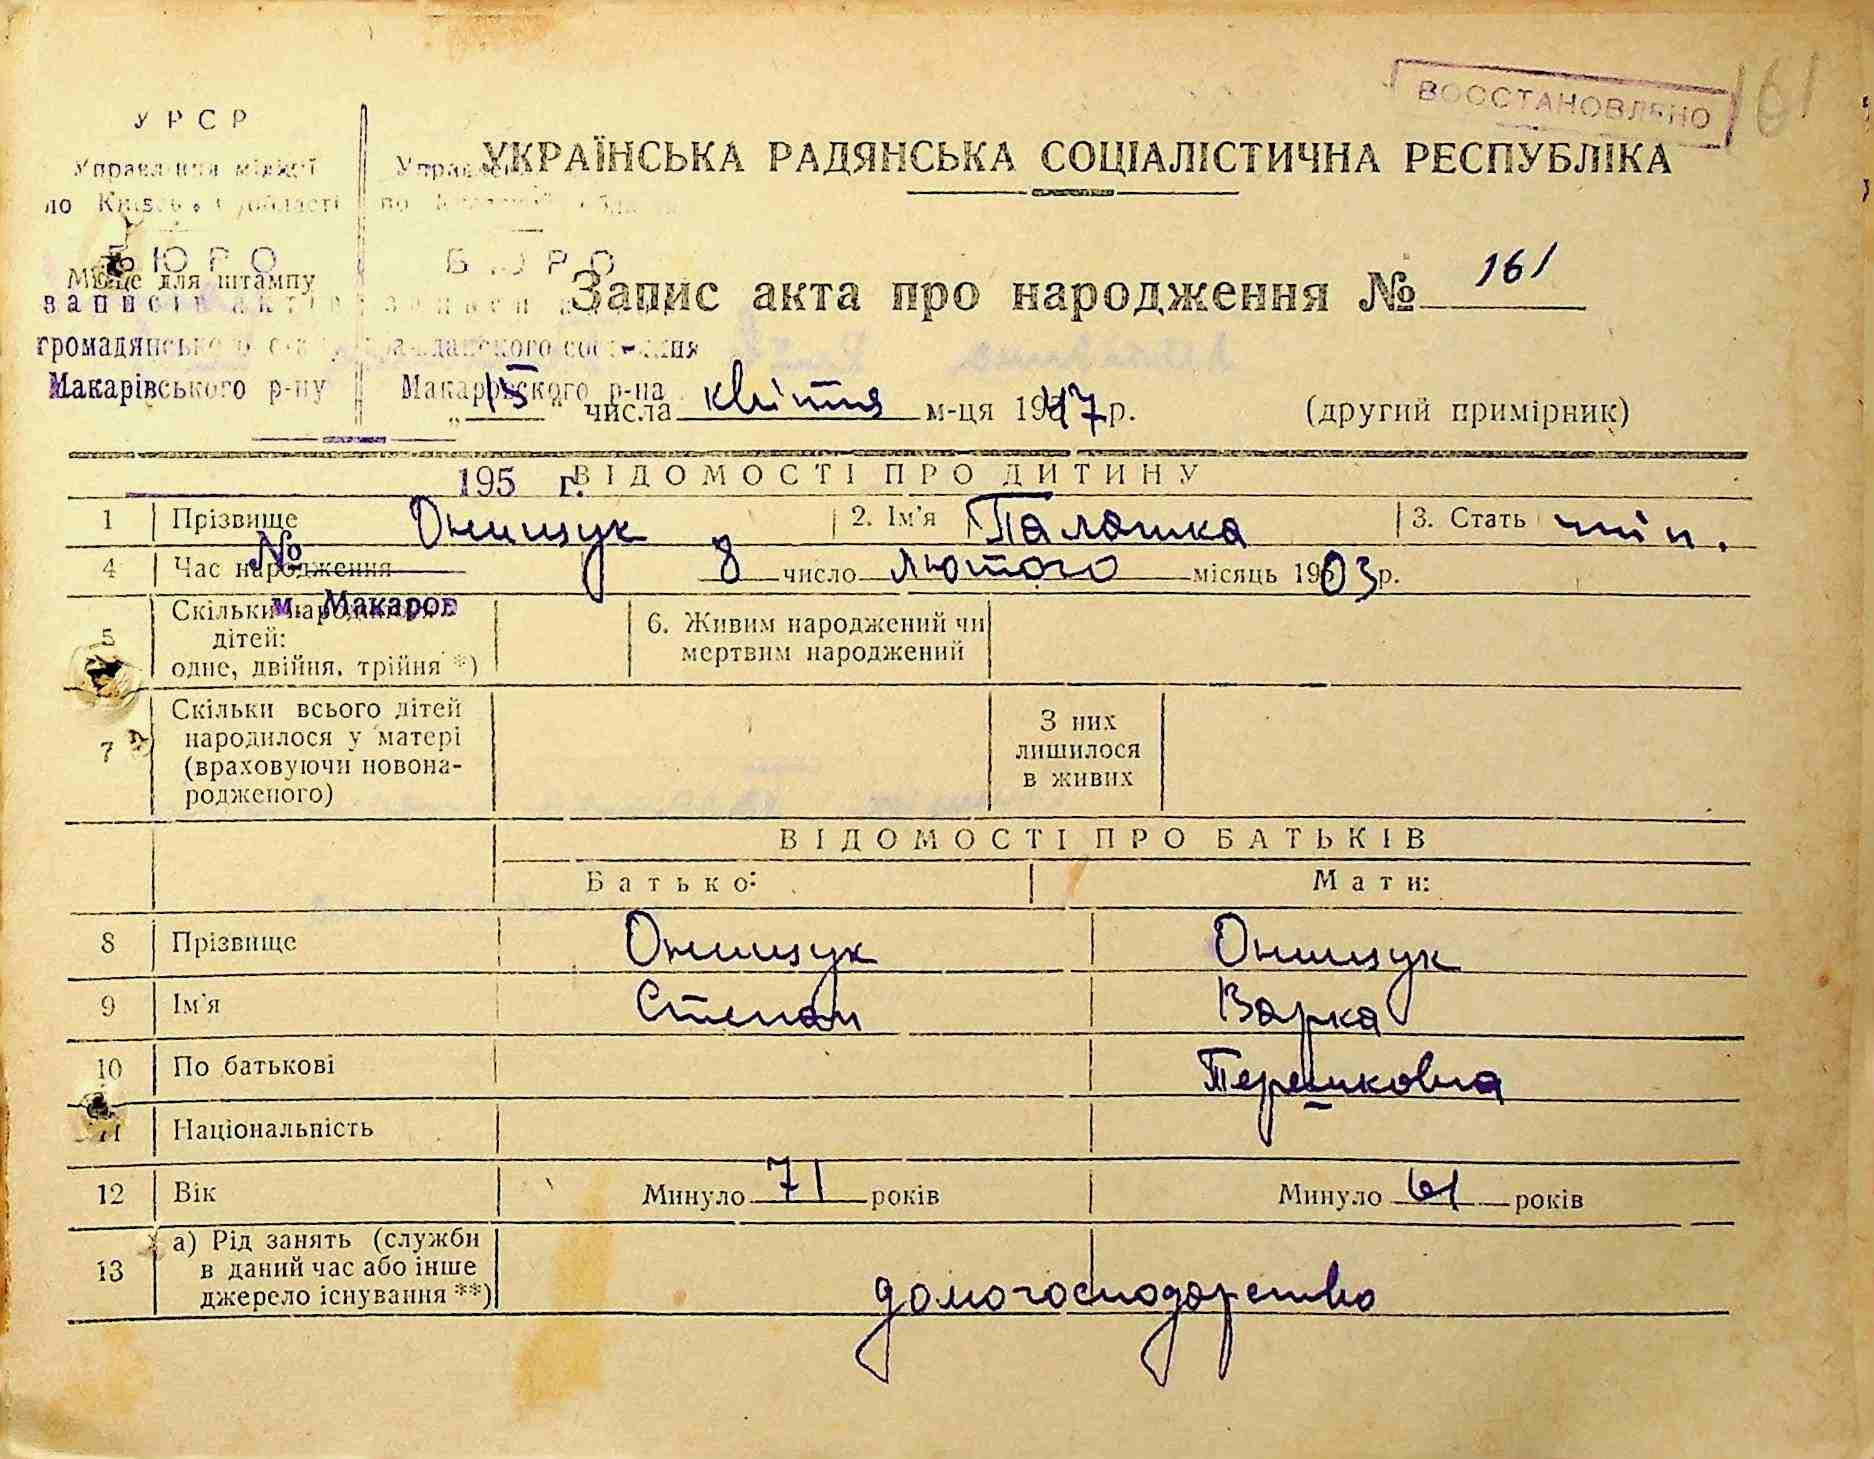 ВОССТАНОВЛЕНО
161
УРСР
Управління міліції
по Київській області
БЮРО
Місце для штампу
записів актів
громадянського стану
Макарівського р-ну
по Киевской
БЮРО
гражданского состояния
Макаровского р-на
195 г.
№
м. Макаров
УКРАЇНСЬКА РАДЯНСЬКА СОЦІАЛІСТИЧНА РЕСПУБЛІКА
Запис акта про народження № 161
„15“ числа квітня м-ця 1947 р. (другий примірник)
ВІДОМОСТІ ПРО ДИТИНУ
1 Прізвище Онищук 2. Ім'я Палашка 3. Стать жін.
4 Час народження 8 число лютого місяць 1903 р.
5 Скільки народилося дітей: одне, двійня, трійня *) 6. Живим народжений чи мертвим народжений
7 Скільки всього дітей народилося у матері (враховуючи новонародженого) З них лишилося в живих
ВІДОМОСТІ ПРО БАТЬКІВ
Батько: Мати:
8 Прізвище Онищук Онищук
9 Ім'я Степан Варка
10 По батькові Терешковна
11 Національність
12 Вік Минуло 71 років Минуло 61 років
13 а) Рід занять (служби в даний час або інше джерело існування **) домогосподарство